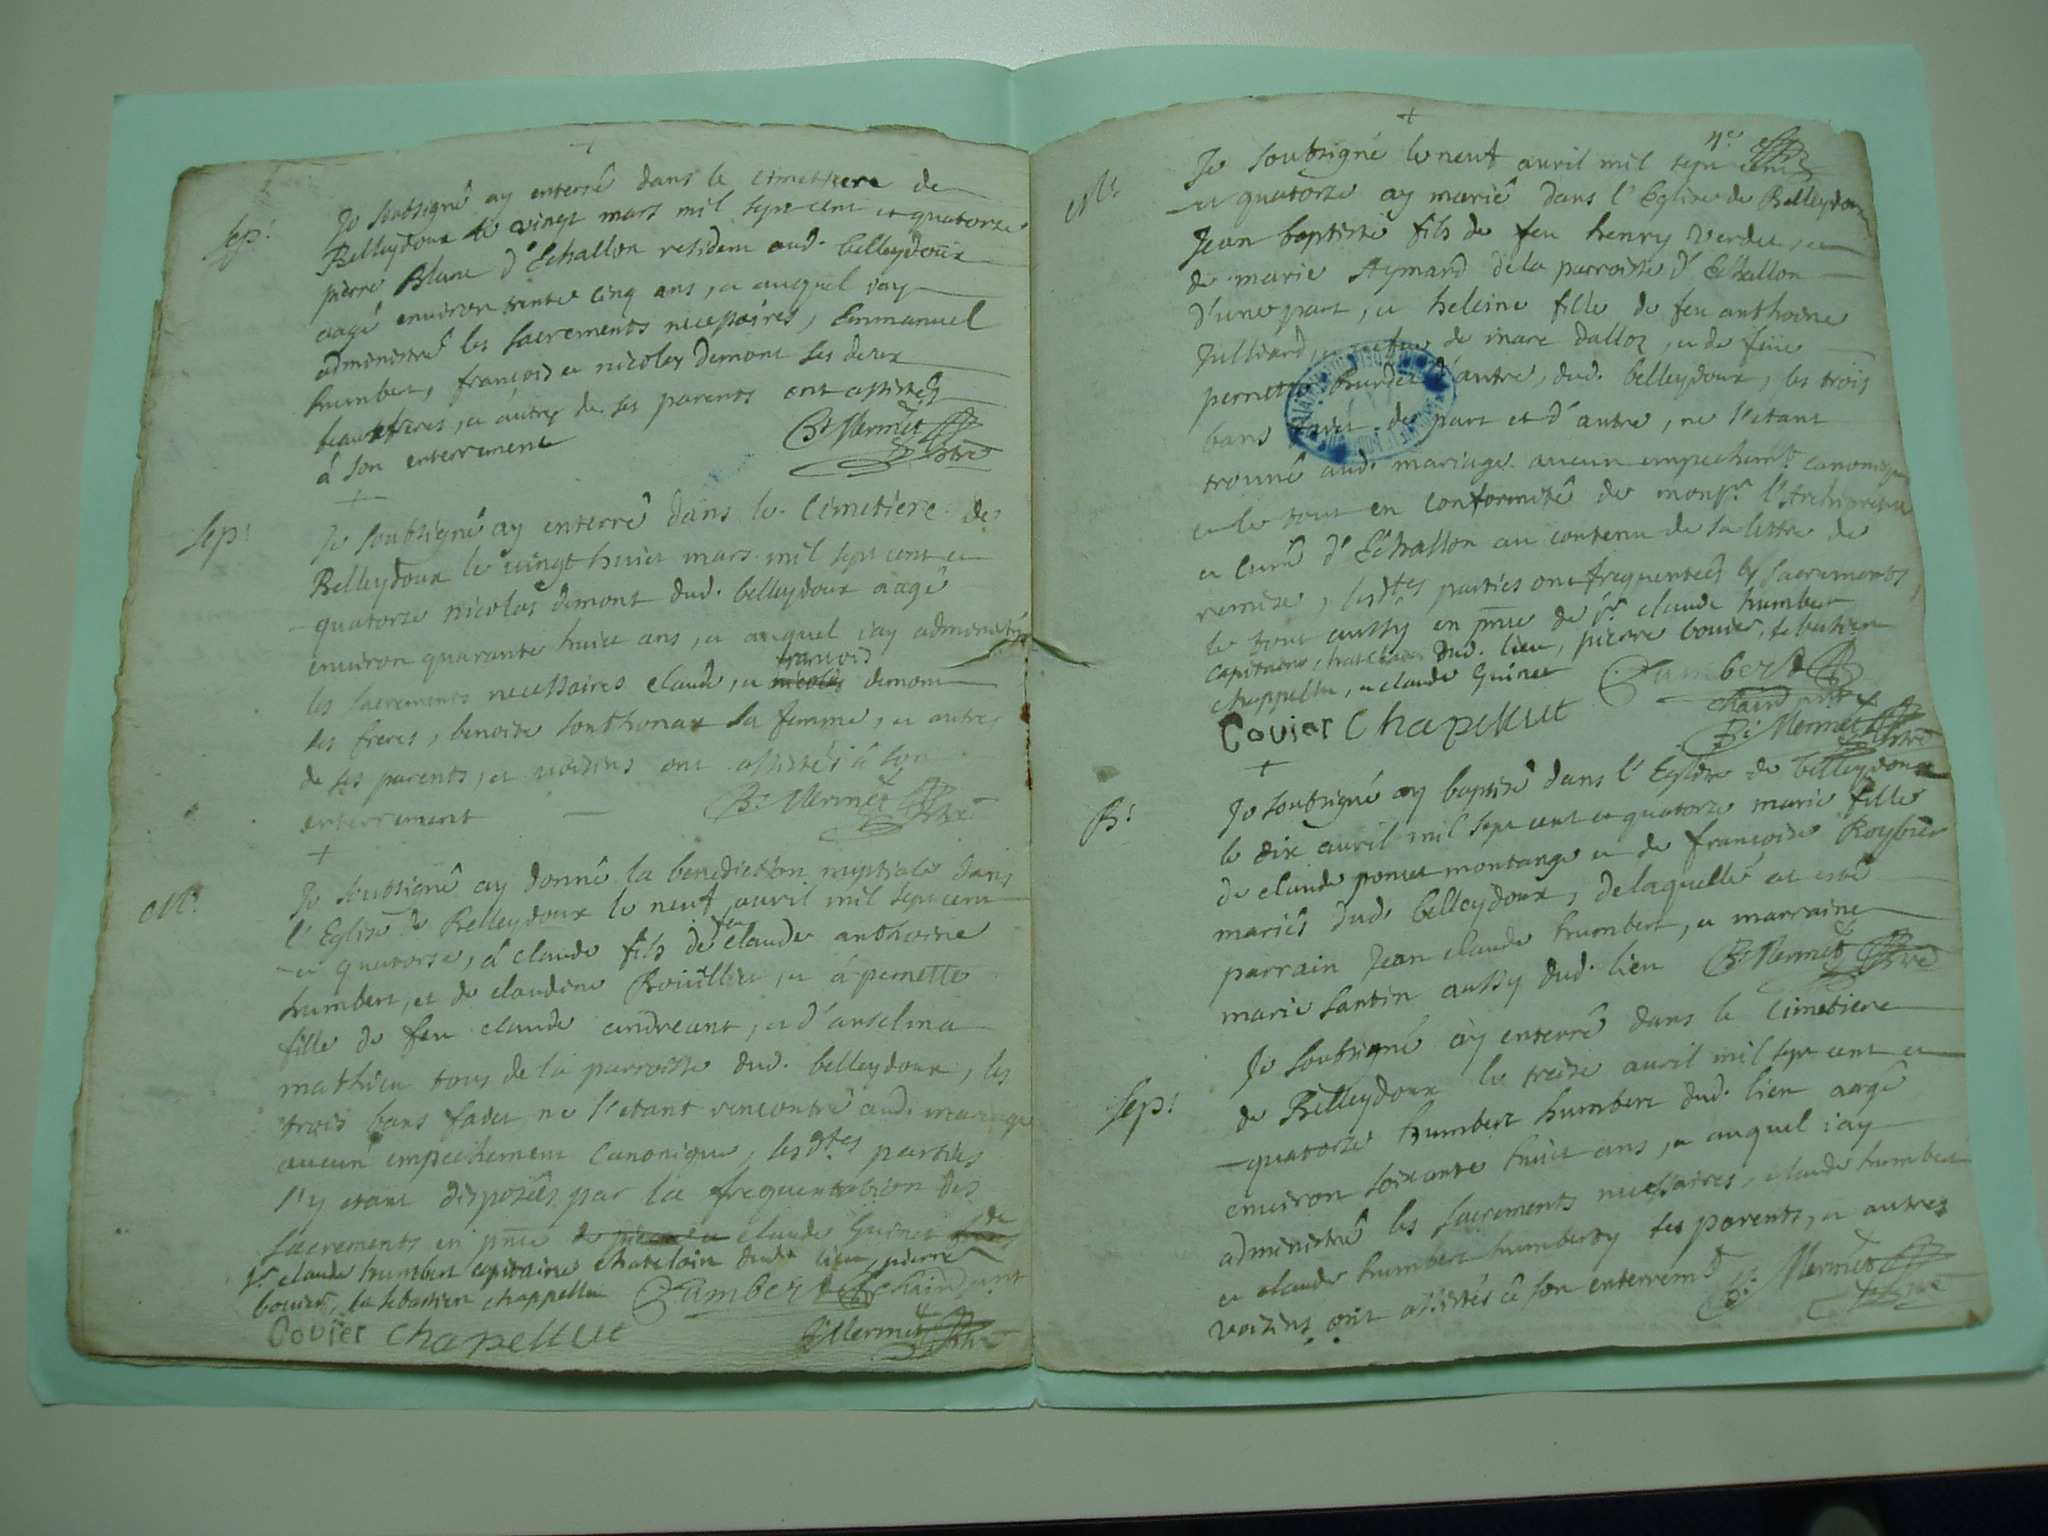 Sep!
Je soubsigné ay enterré dans le cimettiere de
Belleydoux le vingt mars mil sept cent et quatorze
pierre Blanc d'Echallon resident aud. belleydoux
aagé environ trante cinq ans, et auquel i'ay
administré les sacrements necessaires, Emmanuel
humbert, françois et nicolas demont ses deux
beauxfreres, et autres de ses parents ont assistés
à son enterrement
B: Mermet ptre
Sep!
Je soubsigné ay enterré dans le Cimetiere de
Belleydoux le vingt huict mars mil sept cent et
quatorze nicolas demont dud. belleydoux aagé
environ quarante huict ans, et auquel i'ay administré
les sacrements necessaires claude, et françois demont
ses freres, benoite sonthonax sa femme, et autres
de ses parents, et voisins ont assistés à son
enterrement
B: Mermet ptre
M!
Je soubsigné ay donné la benediction nuptiale dans
l'Eglise de Belleydoux le neuf avril mil sept cent
et quatorze, à claude fils de feu claude anthoine
humbert, et de claudine Rouillier, et à pernette
fille de feu claude andreant, et d'anselma
mathieu tous de la parroisse dud. belleydoux, les
trois bans faits ne s'etant rencontré aud. mariage
aucun empechement canonique, lesdtes parties
s'y etant disposées par la frequentation des
sacrements en pnce de claude Guinet de
sr. claude humbert capitaine chatelain dud. lieu, pierre
bouvier, et sebastien chappellu
humbert chatelain pnt
Bovier Chapellut
B: Mermet ptre
4e
M!
Je soubsigné le neuf avril mil sept cent
et quatorze ay marié dans l'Eglise de Belleydoux
Jean baptiste fils de feu henry Verdet, et
de marie Aymard de la parroisse d'Echallon
d'une part, et heleine fille de feu anthoine
Julliard, et de marc dalloz, et de feue
pernette d'autre, dud. belleydoux, les trois
bans faits de part et d'autre, ne s'etant
trouvé aud. mariage aucun empechemt. canonique
et le tout en conformité de monsr. l'Archiprestre
et curé d'Echallon au contenu de sa lettre de
remise, lesdtes parties ont frequenteés les sacrements,
le tout aussy en pnce de sr. claude humbert
capitaine, chatelain dud. lieu, pierre bouvier, sebastien
chappellu, et claude Guinet
humbert
chatelain pnt
Bovier Chapelluut
B: Mermet ptre
B!
Je soubsigné ay baptisé dans l'Eglise de belleydoux
le dix avril mil sept cent et quatorze marie fille
de claude poncet montange et de françoise Roybier
mariés dud. belleydoux, delaquelle at esté
parrain Jean claude humbert, et marraine
marie santin aussy dud. lieu
B: Mermet ptre
Sep!
Je soubsigné ay enterré dans le Cimetiere
de Belleydoux le treize avril mil sept cent et
quatorze humbert humbert dud. lieu aagé
environ soixante huict ans, et auquel i'ay
administré les sacrements necessaires, claude humbert
et claude humbert humberty ses parents, et autres
voizins ont assistés à son enterremt.
B: Mermet ptre